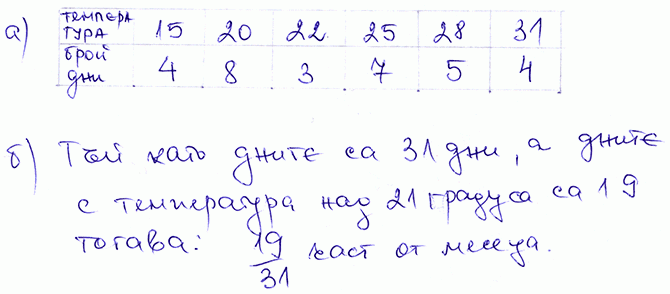 а) ТЕМПЕРА ТУРА 15 20 22 25 28 31
БРОЙ ДНИ 4 8 3 7 5 4
б) Тъй като дните са 31 дни, а дните
с температура над 21 градуса са 19
тогава: 19/31 част от месеца.